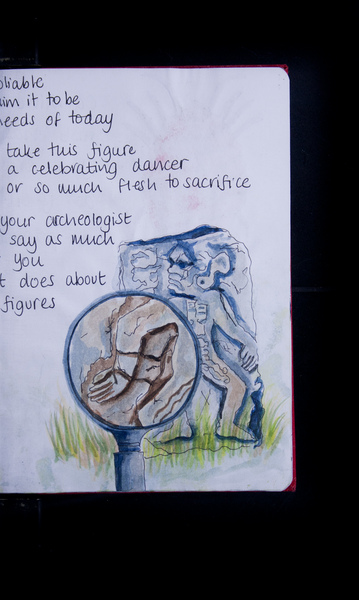 aim it to be
needs of today
take this figure
a celebrating dancer
or so much flesh to sacrifice
your archeologist
say as much
you
does about
figures